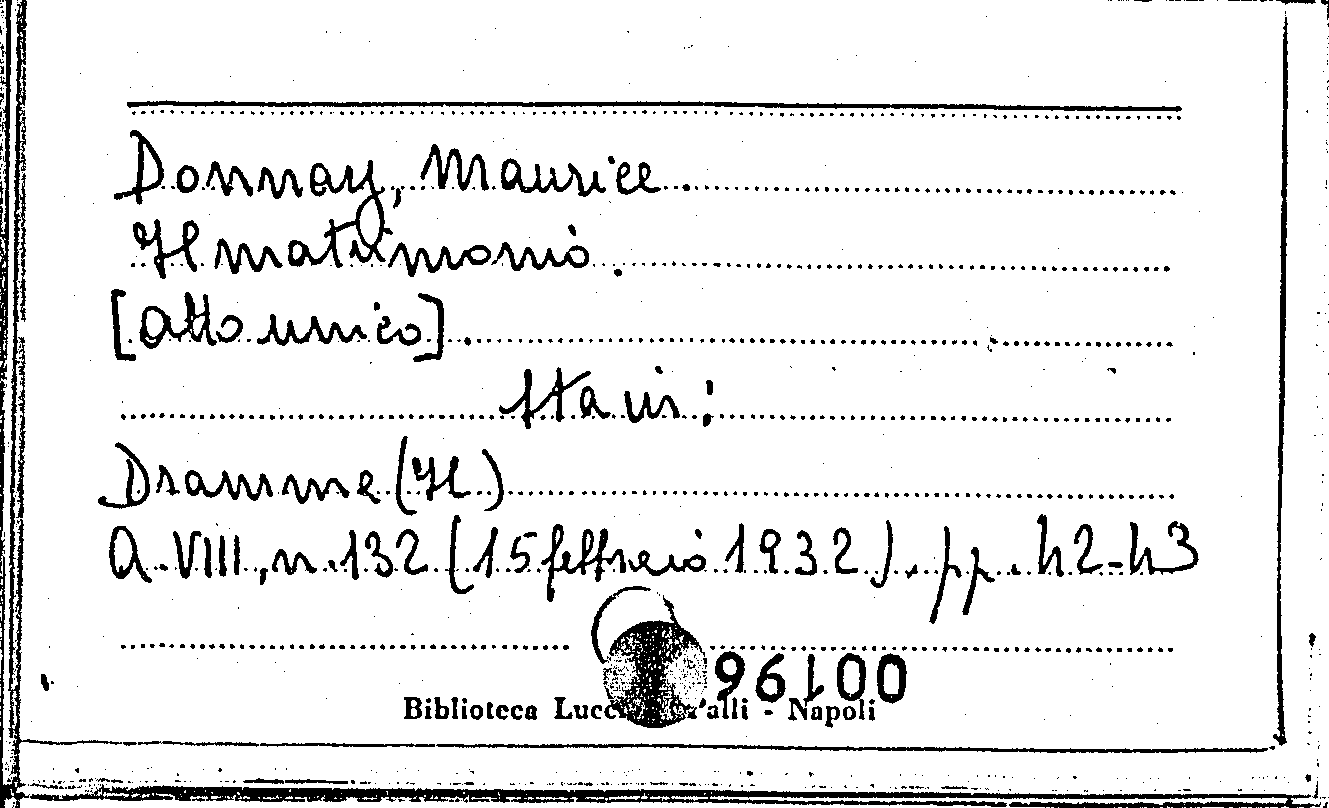 Donnay, Maurice.
Il matrimonio.
[atto unico].
Sta in:
Dramma (Il)
A. VIII, n. 132 (15 febbraio 1932). pp. 42-43
96100
Biblioteca - Napoli